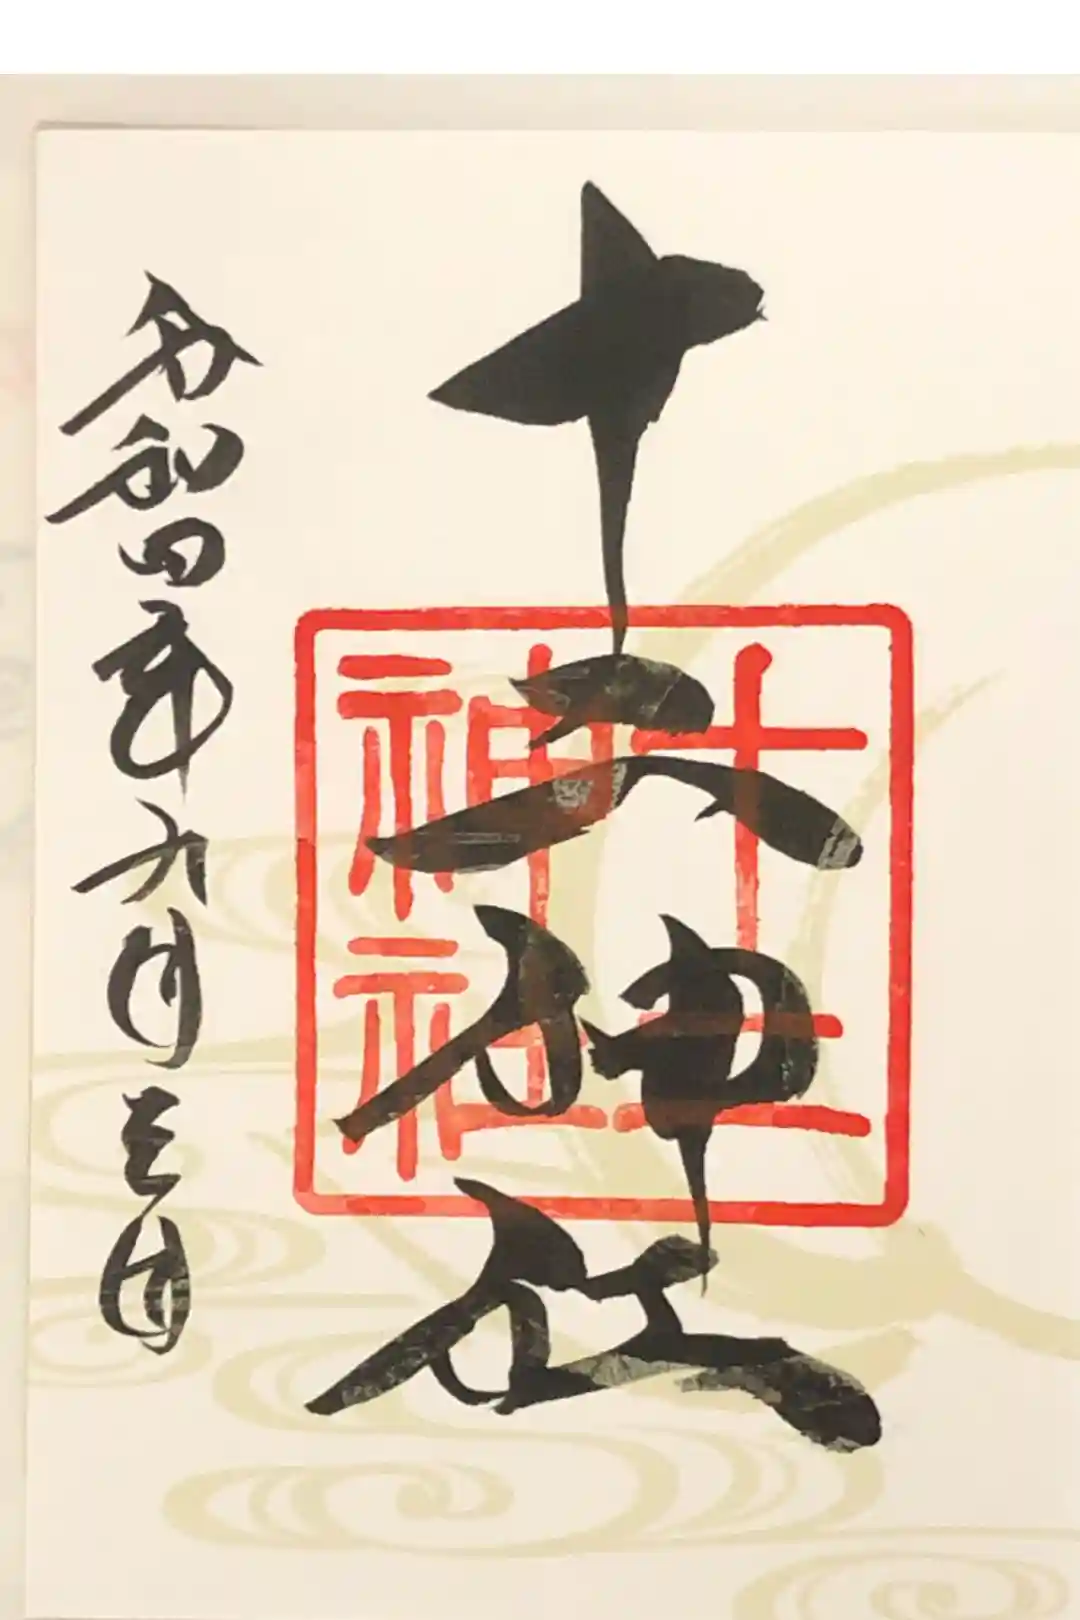 十二神社
令和四年九月三日
十二
神社